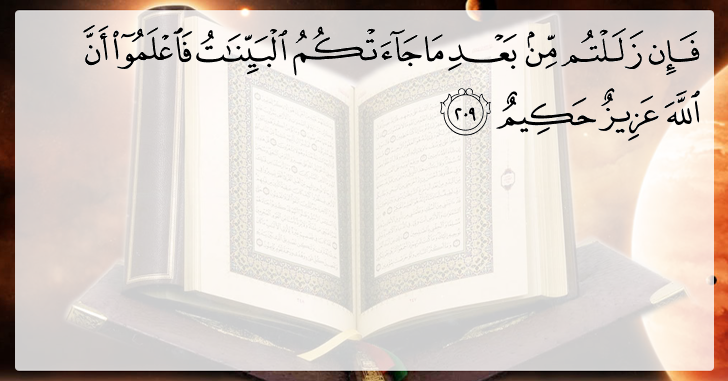 فَإِن زَلَلْتُم مِّنۢ بَعْدِ مَا جَآءَتْكُمُ ٱلْبَيِّنَٰتُ فَٱعْلَمُوٓا۟ أَنَّ
ٱللَّهَ عَزِيزٌ حَكِيمٌ ٢٠٩